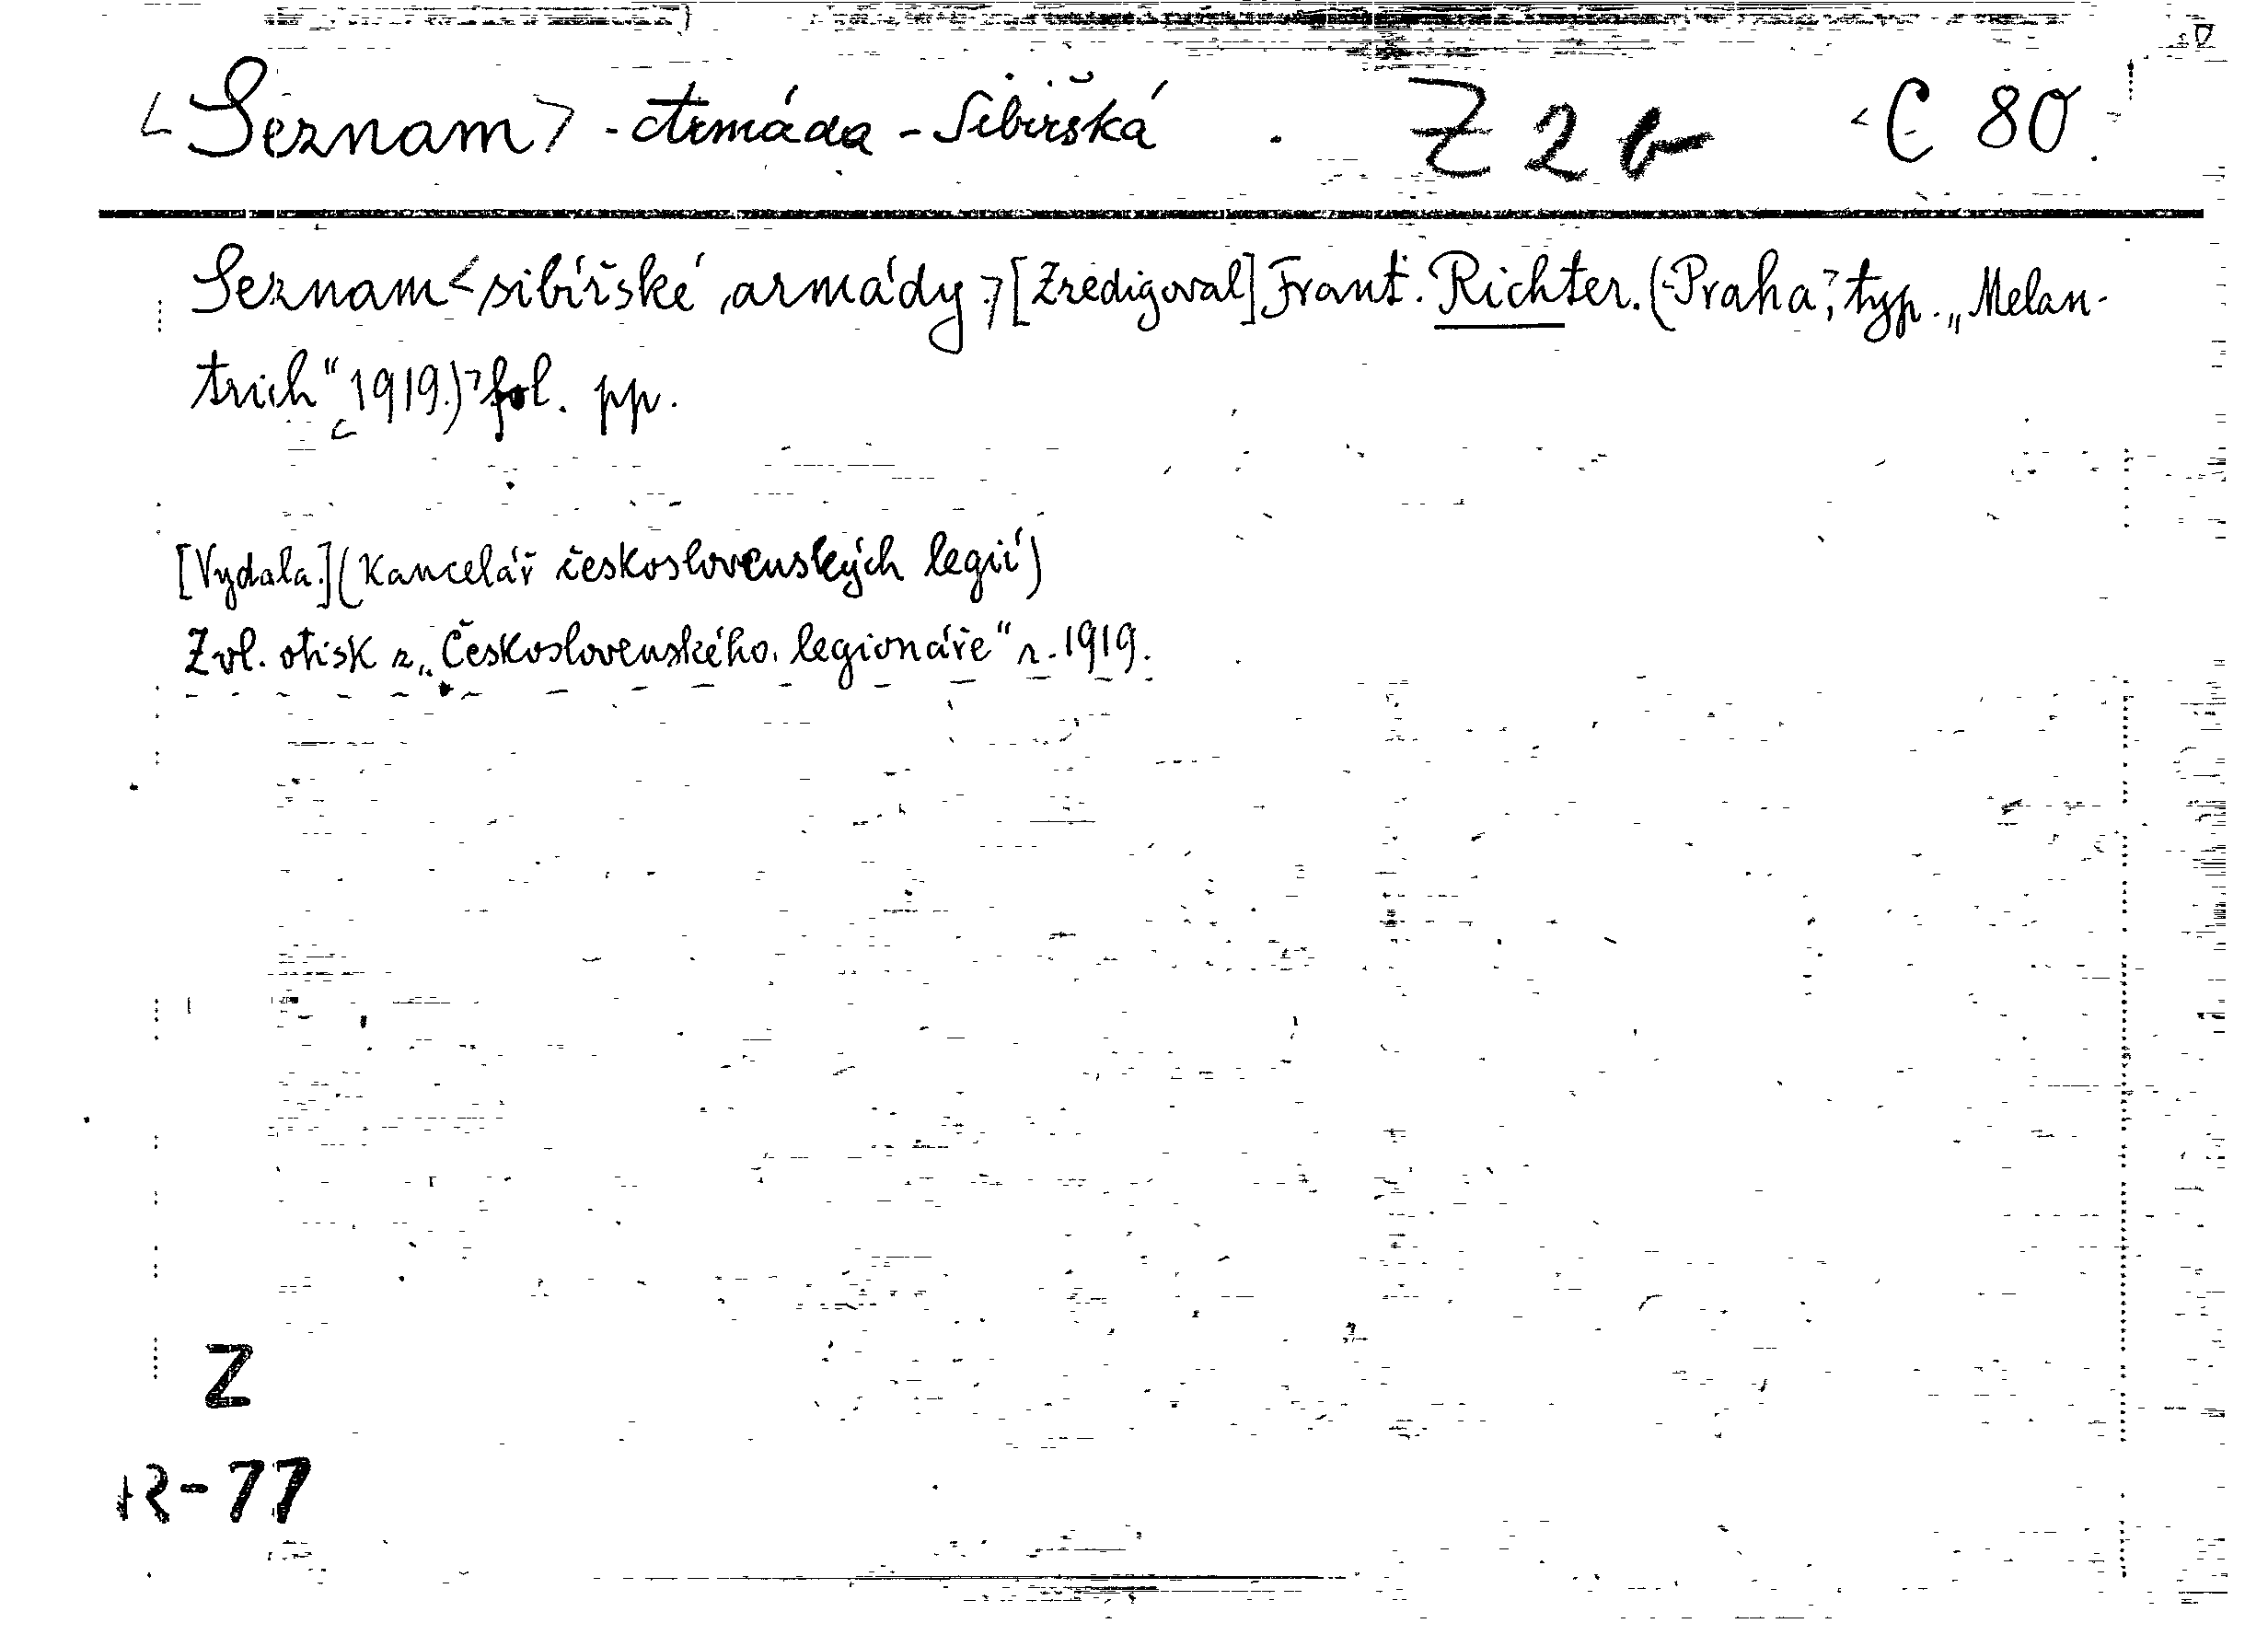 <Seznam> - Armáda - Sibiřská. Z 2 b <C 80
Seznam <sibiřské armády.> [Zredigoval] Frant. Richter. (<Praha,> typ. „Melan-
trich“ <1919.)> fol. pp.
[Vydala.] (Kancelář československých legií)
Zvl. otisk z „Československého legionáře“ r. 1919.
Z
R-77